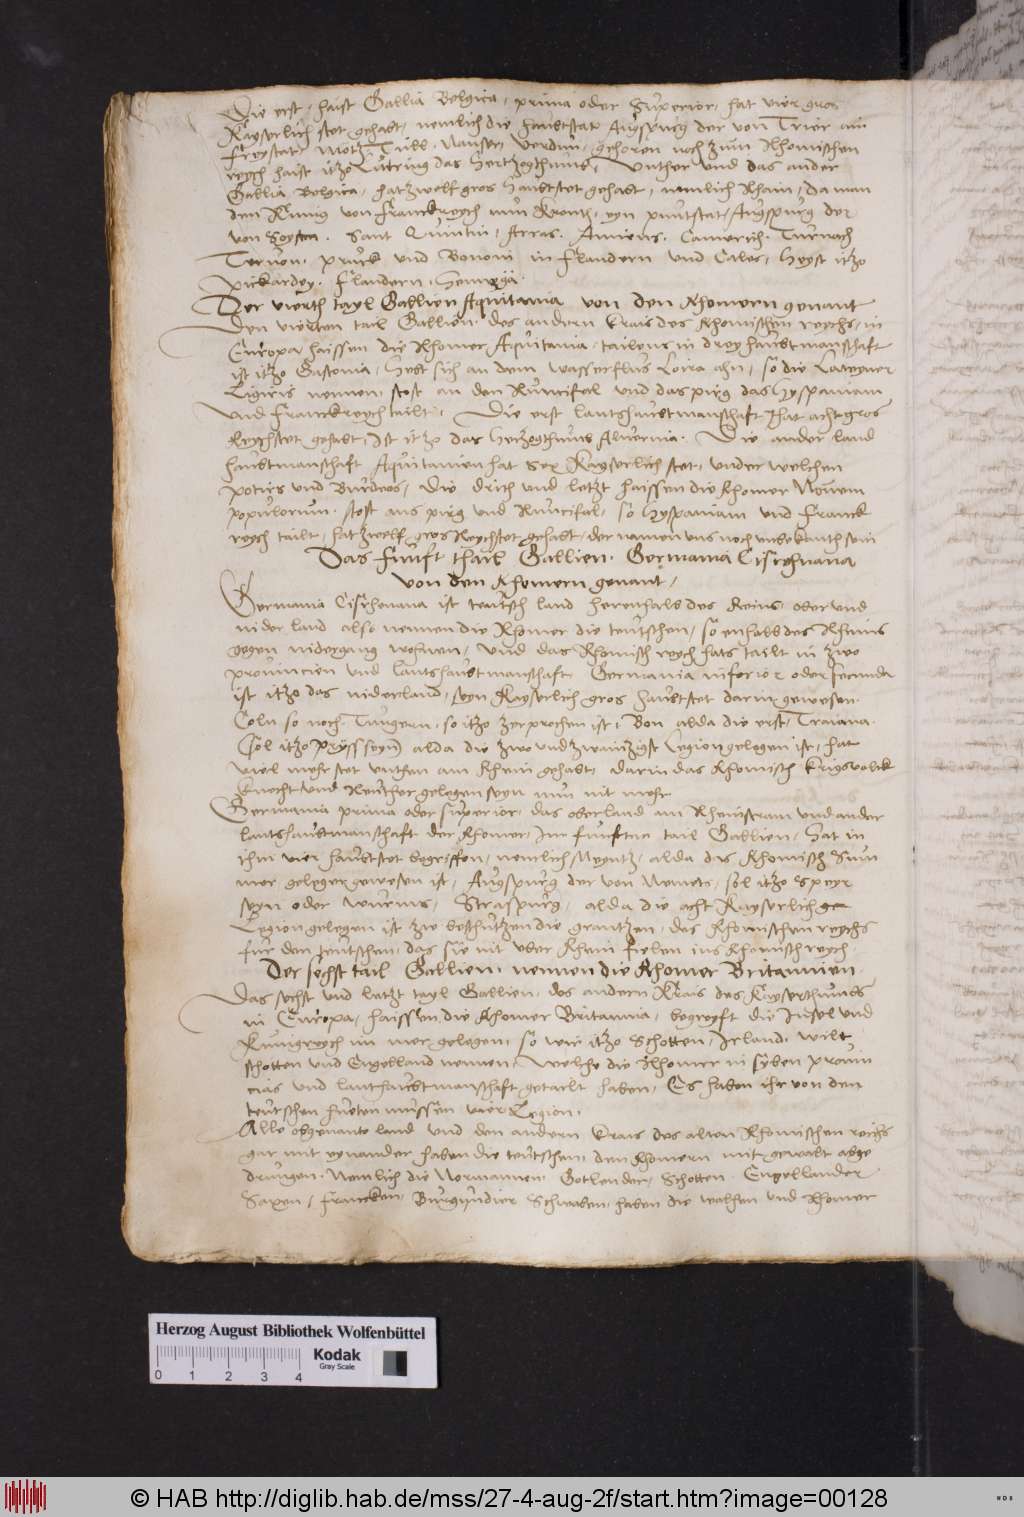 Die erst, haist Gallia Belgica, prima oder Superior, hat vier gros
Kayserlich stet gehabt, nemlich die haubtstat Augspurg der von Trier ain
freystat, Metz, Tull, Verdun, gehoren noch zum Rhomischen
reych haist itzo Lutring das Hertzogthumb, Unther und das ander
Gallia Belgica, hat zwelf gros haubtstet gehabt, nemlich Rhain, da man
den Kunig von Franckreych nun kront, eyn Augspurg der
von Soysen. Sant Quintin, Arras. Amiens. Camerich. Turnach
Teruon, pruck und Bononi in Flandern und Cales, heyst itzo
pickardey. Flandern, Hennegä.
Der vierth tayl Gallien Aquitania von den Rhomern genant
Den vierten tail Gallien, des andern krais des Rhomischen reychs, in
Europa haissen die Rhomer Aquitania, tailens in drey haubtmanschaft
ist itzo Gasconia, hebt sich an dem wasserflus Loira ahn, so die Lateyner
Ligiris nennen, stost an den Runcifal und das pirg das Hyspaniam
und Franckreych tailt, Die erst lantshaubtmanschaft hat acht gros
Reychstet gehabt, Ist itzo das Hertzogthumb Aluernia. Die ander land
haubtmanschaft Aquitanien hat sex Kayserlich stet, under welchen
potirs und Burdeos, Die drith und letzt haissen die Rhomer Nouem
populorum. stost ans pirg und Runcifal, so Hyspaniam und Franck
reych tailt, hat zwelf gros Reychstet gehabt, der namen uns noch unbekanth sein
Das funft thail Gallien. Germania Cisrhenana
von den Rhomern genant,
Germania Cisrhenana ist teutsch land herenhalb des Reins, ober und
nider land also nennen die Rhomer die teutschen, so enhalb des Rheins
gegen nidergang wohnen, und das Rhomisch reych hats tailt in zwo
prouincien und lantshaubtmanschaft, Germania inferior oder secunda
ist itzo das niderland, seyn Kayserlich gros haubtstet darin gewesen.
Coln so noch. Tungern, so itzo zerprochen ist, Bon alda die erst, Traiana
(sol itzo seyn) alda die zwo und zwainzigst Legion gelegen ist, hat
viel mehr stet unthen am Rhein gehabt, darin das Rhomisch krigsvolck
knecht und Reuther gelegen seyn nun nit mehr
Germania prima oder superior, das oberland am Rheinstram und ander
lantshaubtmanschaft der Rhomer, Im funften tail Gallien, hat in
ihm vier haubtstet begriffen, nemlich Meyntz, alda das Rhomisch Sum
mer geleger gewesen ist, Augspurg der von Nemets, sol itzo Speyr
seyn oder Wurms, Straspurg, alda die acht Kayserliche
Legion gelegen ist zw beschutzen die grantzen, des Rhomischen reychs
fur den teutschen, das sie nit uber Rhein fielen ins Rhomisch reych.
Der sechst tail Gallien, nennen die Rhomer Britannien.
Das sechst und letzt tayl Gallien, des andern Krais des Kayserthumbs
in Europa, haissen die Rhomer Britannia, begreyft die Insel und
Kunigreych im mer gelegen, so wir itzo Schotten, Irland, wilt
schotten und Engelland nennen, Welche die Rhomer in syben prouin
cias und lanthaubtmanschaft getailt haben, Es haben ihr von den
teutschen hueten mussen vier Legion.
Alle obgenante land und den andern krais des alten Rhomischen reichs
gar mit eynander haben die teutschen, den Rhomern mit gewalt abge
drungen. Nemlich die Normannen. Gotlender, Schotten. Engellander
Saxen, Francken, Burgundier Schwaben, haben die walhen und Rhomer
Herzog August Bibliothek Wolfenbüttel
0 1 2 3 4
Kodak
Gray Scale
© HAB http://diglib.hab.de/mss/27-4-aug-2f/start.htm?image=00128